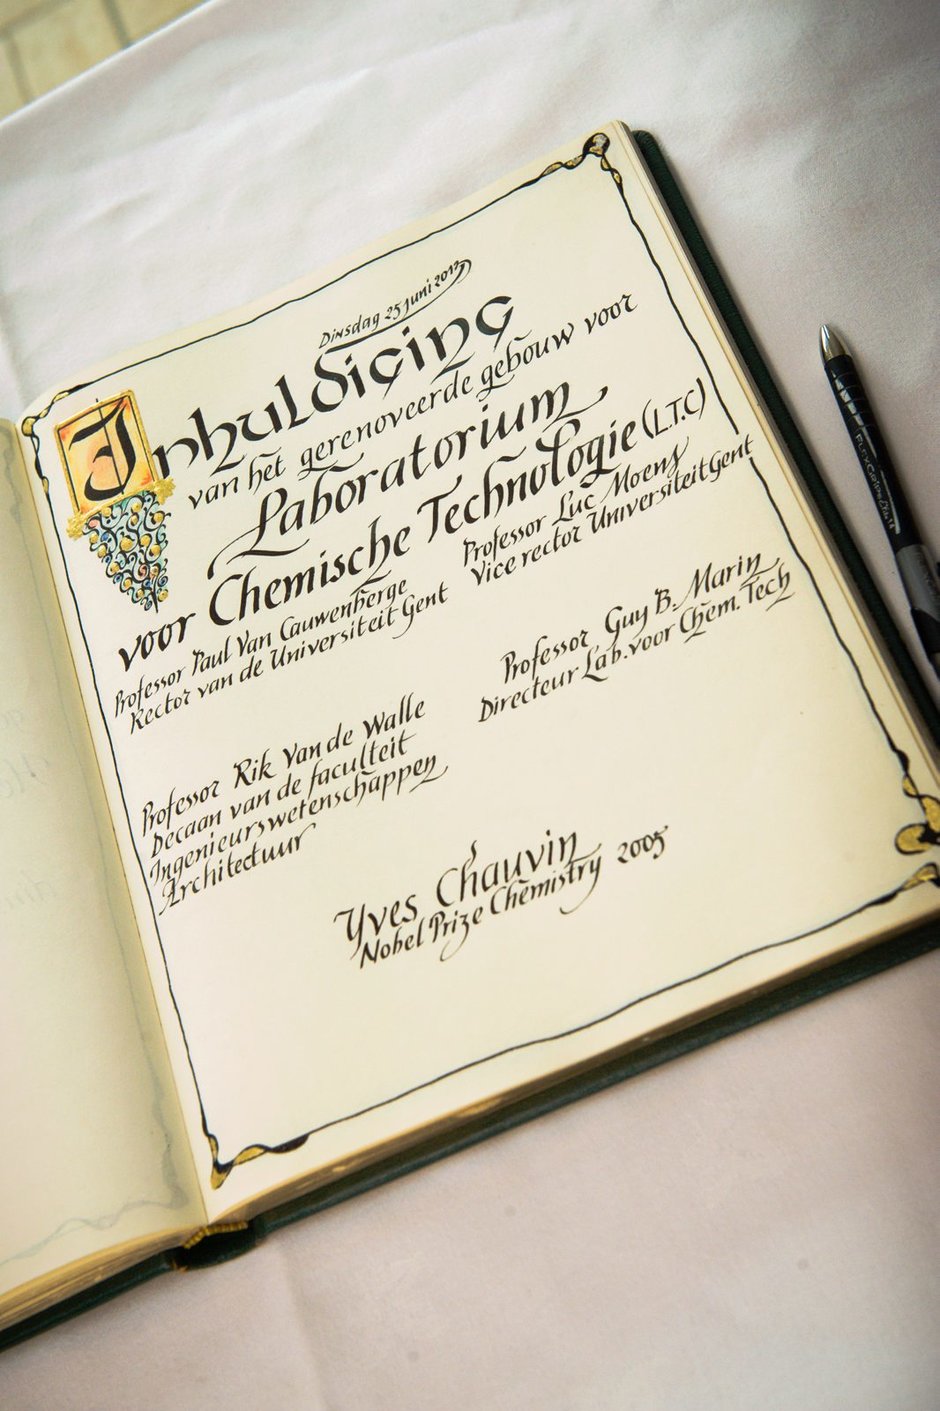 Dinsdag 25 juni 2013
Inhuldiging
van het gerenoveerde gebouw voor
Laboratorium
voor Chemische Technologie (L.T.C)
Professor Paul Van Cauwenberge
Rector van de Universiteit Gent
Professor Luc Moens
Vice rector Universiteit Gent
Professor Guy B. Marin
Directeur Lab. voor Chem. Tech
Professor Rik Van de Walle
Decaan van de faculteit
Ingenieurswetenschappen
Architectuur
Yves Chauvin
Nobel Prize Chemistry 2005